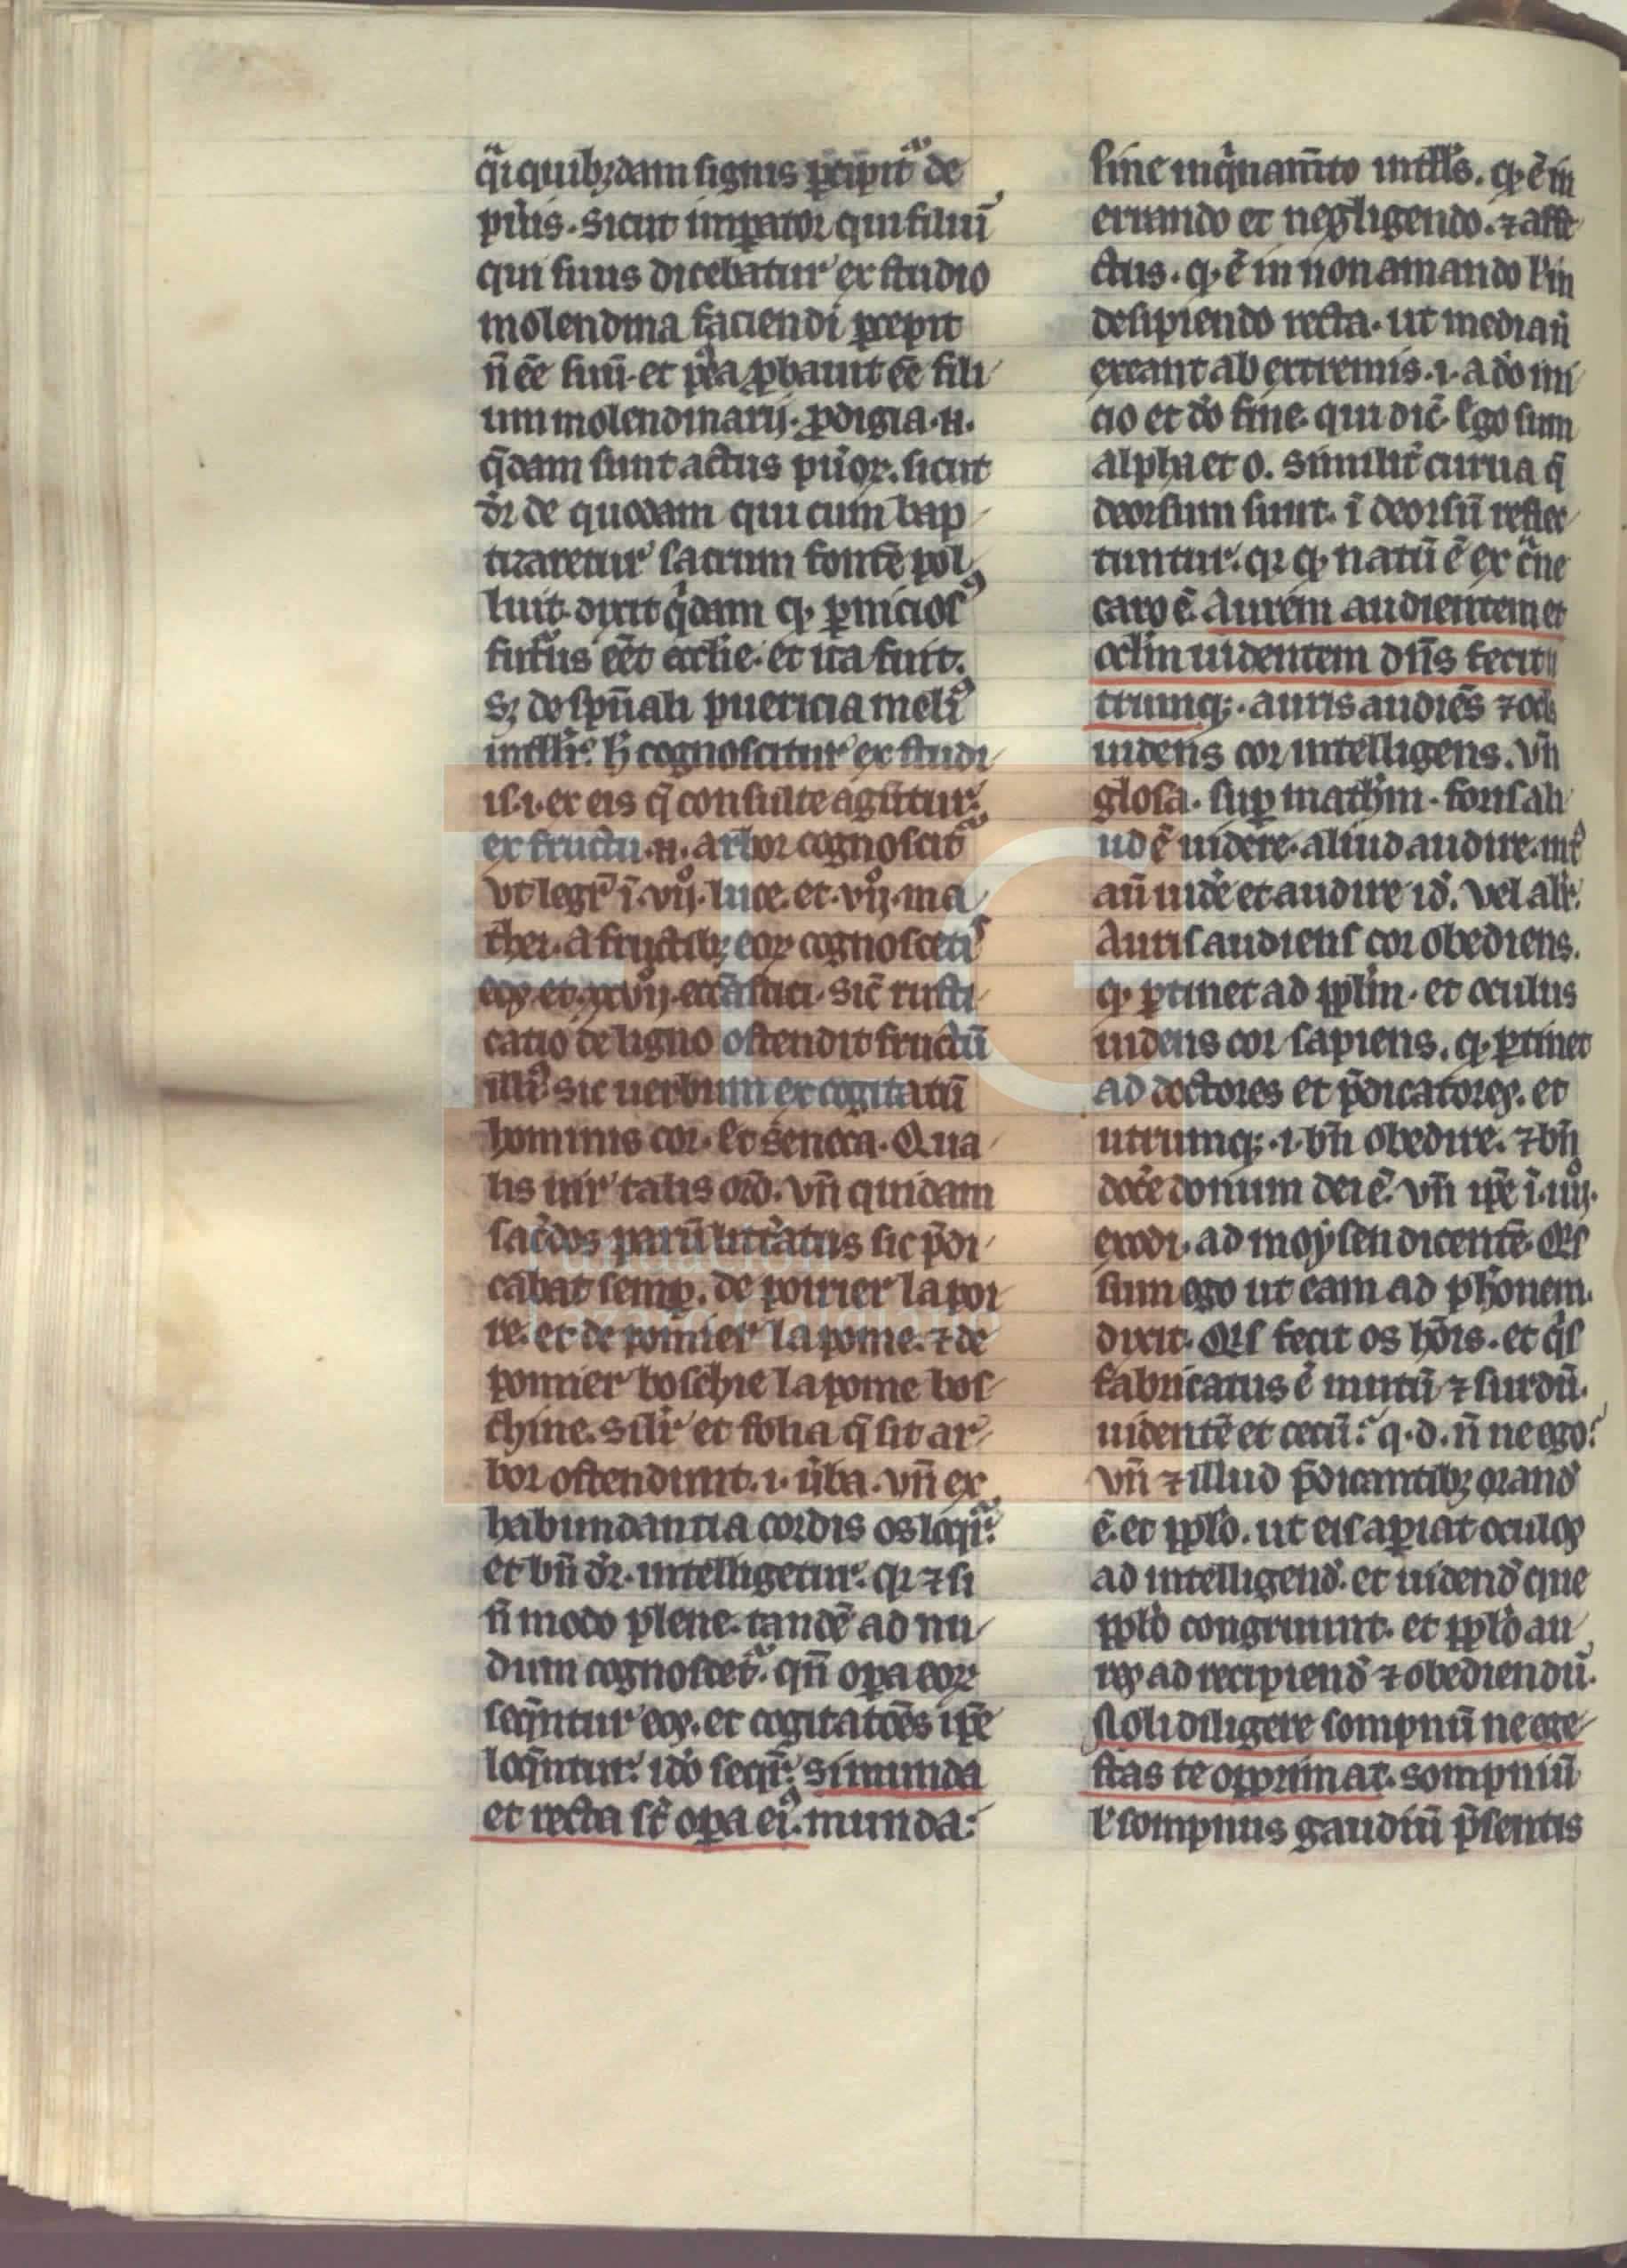 q̃i quibꝫdam signis p̲cipit᷑ de
pu̾is. sicut imꝑator qui filiu᷑
qui suus dicebatur ex studio
molendina faciendi p̲cepit
n̄ ee̅ suu̅. et p̾ea ꝓbauit ee̅ fili
um molendinarij. ꝓdigia .n.
q̅dam sunt actus pu̾oꝝ. sicut
dr̾ de quodam qui cum bap
tizaretur sacrum fonte̅ pol
luit. dixit q̾dam q̵ ꝑnicios᷒
futurus eet̅ eccl̾ie. et ita fuit.
sꝫ de sp̅uali puericia meli᷒
intll'r. h̾ cognoscitur ex studi
is .i. ex eis q̅ consulte agu̅tur.
ex fructu .n. arbor cognoscit᷑
vt leg̅r i̅ .vijº. luce. et .vijº. ma
thei. a fructibꝫ eoꝝ cognosceti᷒
eos et .xxvijº. ecc̅astici. sic̅ rusti
catio de ligno ostendit fructu̅
illi᷒. sic uerbum ex cogitatu̅
hominis cor. Et seneca. Qua
lis uir talis oro̅. vn̅ quidam
sac̾dos paru̅ litt̾atus sic p̅di
cabat semꝑ. de poirier la poi
re. et de pomier la pome. ⁊ de
pomier boschie la pome bos
chine. silr̾ et folia q̅ sit ar
bor ostendunt .i. u̾ba. vn̅ ex
habundantia cordis os loq̾r.
et bn̅ dr̾. intelligetur. qꝛ ⁊ si
n̅ modo plene. tande̅ ad nu
dum cognoscet᷑. qn̅ oꝑa eoꝝ
seq̅ntur eos. et cogitatoe̅s ip̅e
loq̅ntur. ido̾ seq̾r. si munda
et recta st̅ oꝑa ei᷒. munda:
sine inq̾nam̅to intll's. q̵ e̅ in
errando et negligendo. ⁊ affe
ctus. q̵ e̅ in non amando l' in
desipiendo recta. ut media n̅
exeant ab extremis .i. a do̾ ini
cio et do̾ fine. qui dic̅. Ego sum
alpha et o. similit̾ curua q̅
deorsum sunt. i̅ deorsu̅ reflec
tuntur. qꝛ q̵ natu̅ e̅ ex c̾ne
caro e̅. Aurem audientem et
ocl̾m uidentem dn̅s fecit u
trumqꝫ. auris audie̅s ⁊ ocl's
uidens cor intelligens. vn̅
glosa. suꝑ math̅m. forsali
ud e̅ uidere. aliud audire. int̾
au̅ uide̾ et audire id̾. vel alr̾.
Auris audiens cor obediens.
q̵ ꝑtinet ad ppl'm. et oculus
uidens cor sapiens. q̵ ꝑtinet
ad doctores et p̅dicatores. et
utrumqꝫ .i. bn̅ obedire. ⁊ bn̅
doce̾ donum dei e̅. vn̅ ip̅e i̅ .iiijº.
exodi. ad moysen dicente̅. Q̾s
sum ego ut eam ad ph̾onem.
dixit. Q̾s fecit os ho̅is. et q̾s
fabricatus e̅ mutu̅ ⁊ surdu̅.
uidente̅ et cecu̅? q.d. n̅ne ego?
vn̅ ⁊ illud p̅dicantibꝫ orand̾
e̅. et ppl'o. ut eis aꝑiat oculos
ad intelligend̾. et uidend̾ que
ppl'o congruunt. et ppl'o au
res ad recipiend̾ ⁊ obediendu̅.
Noli diligere sompnu̅ ne ege
stas te opprimat. sompniu̅
l' sompnus gaudiu̅ p̅sentis